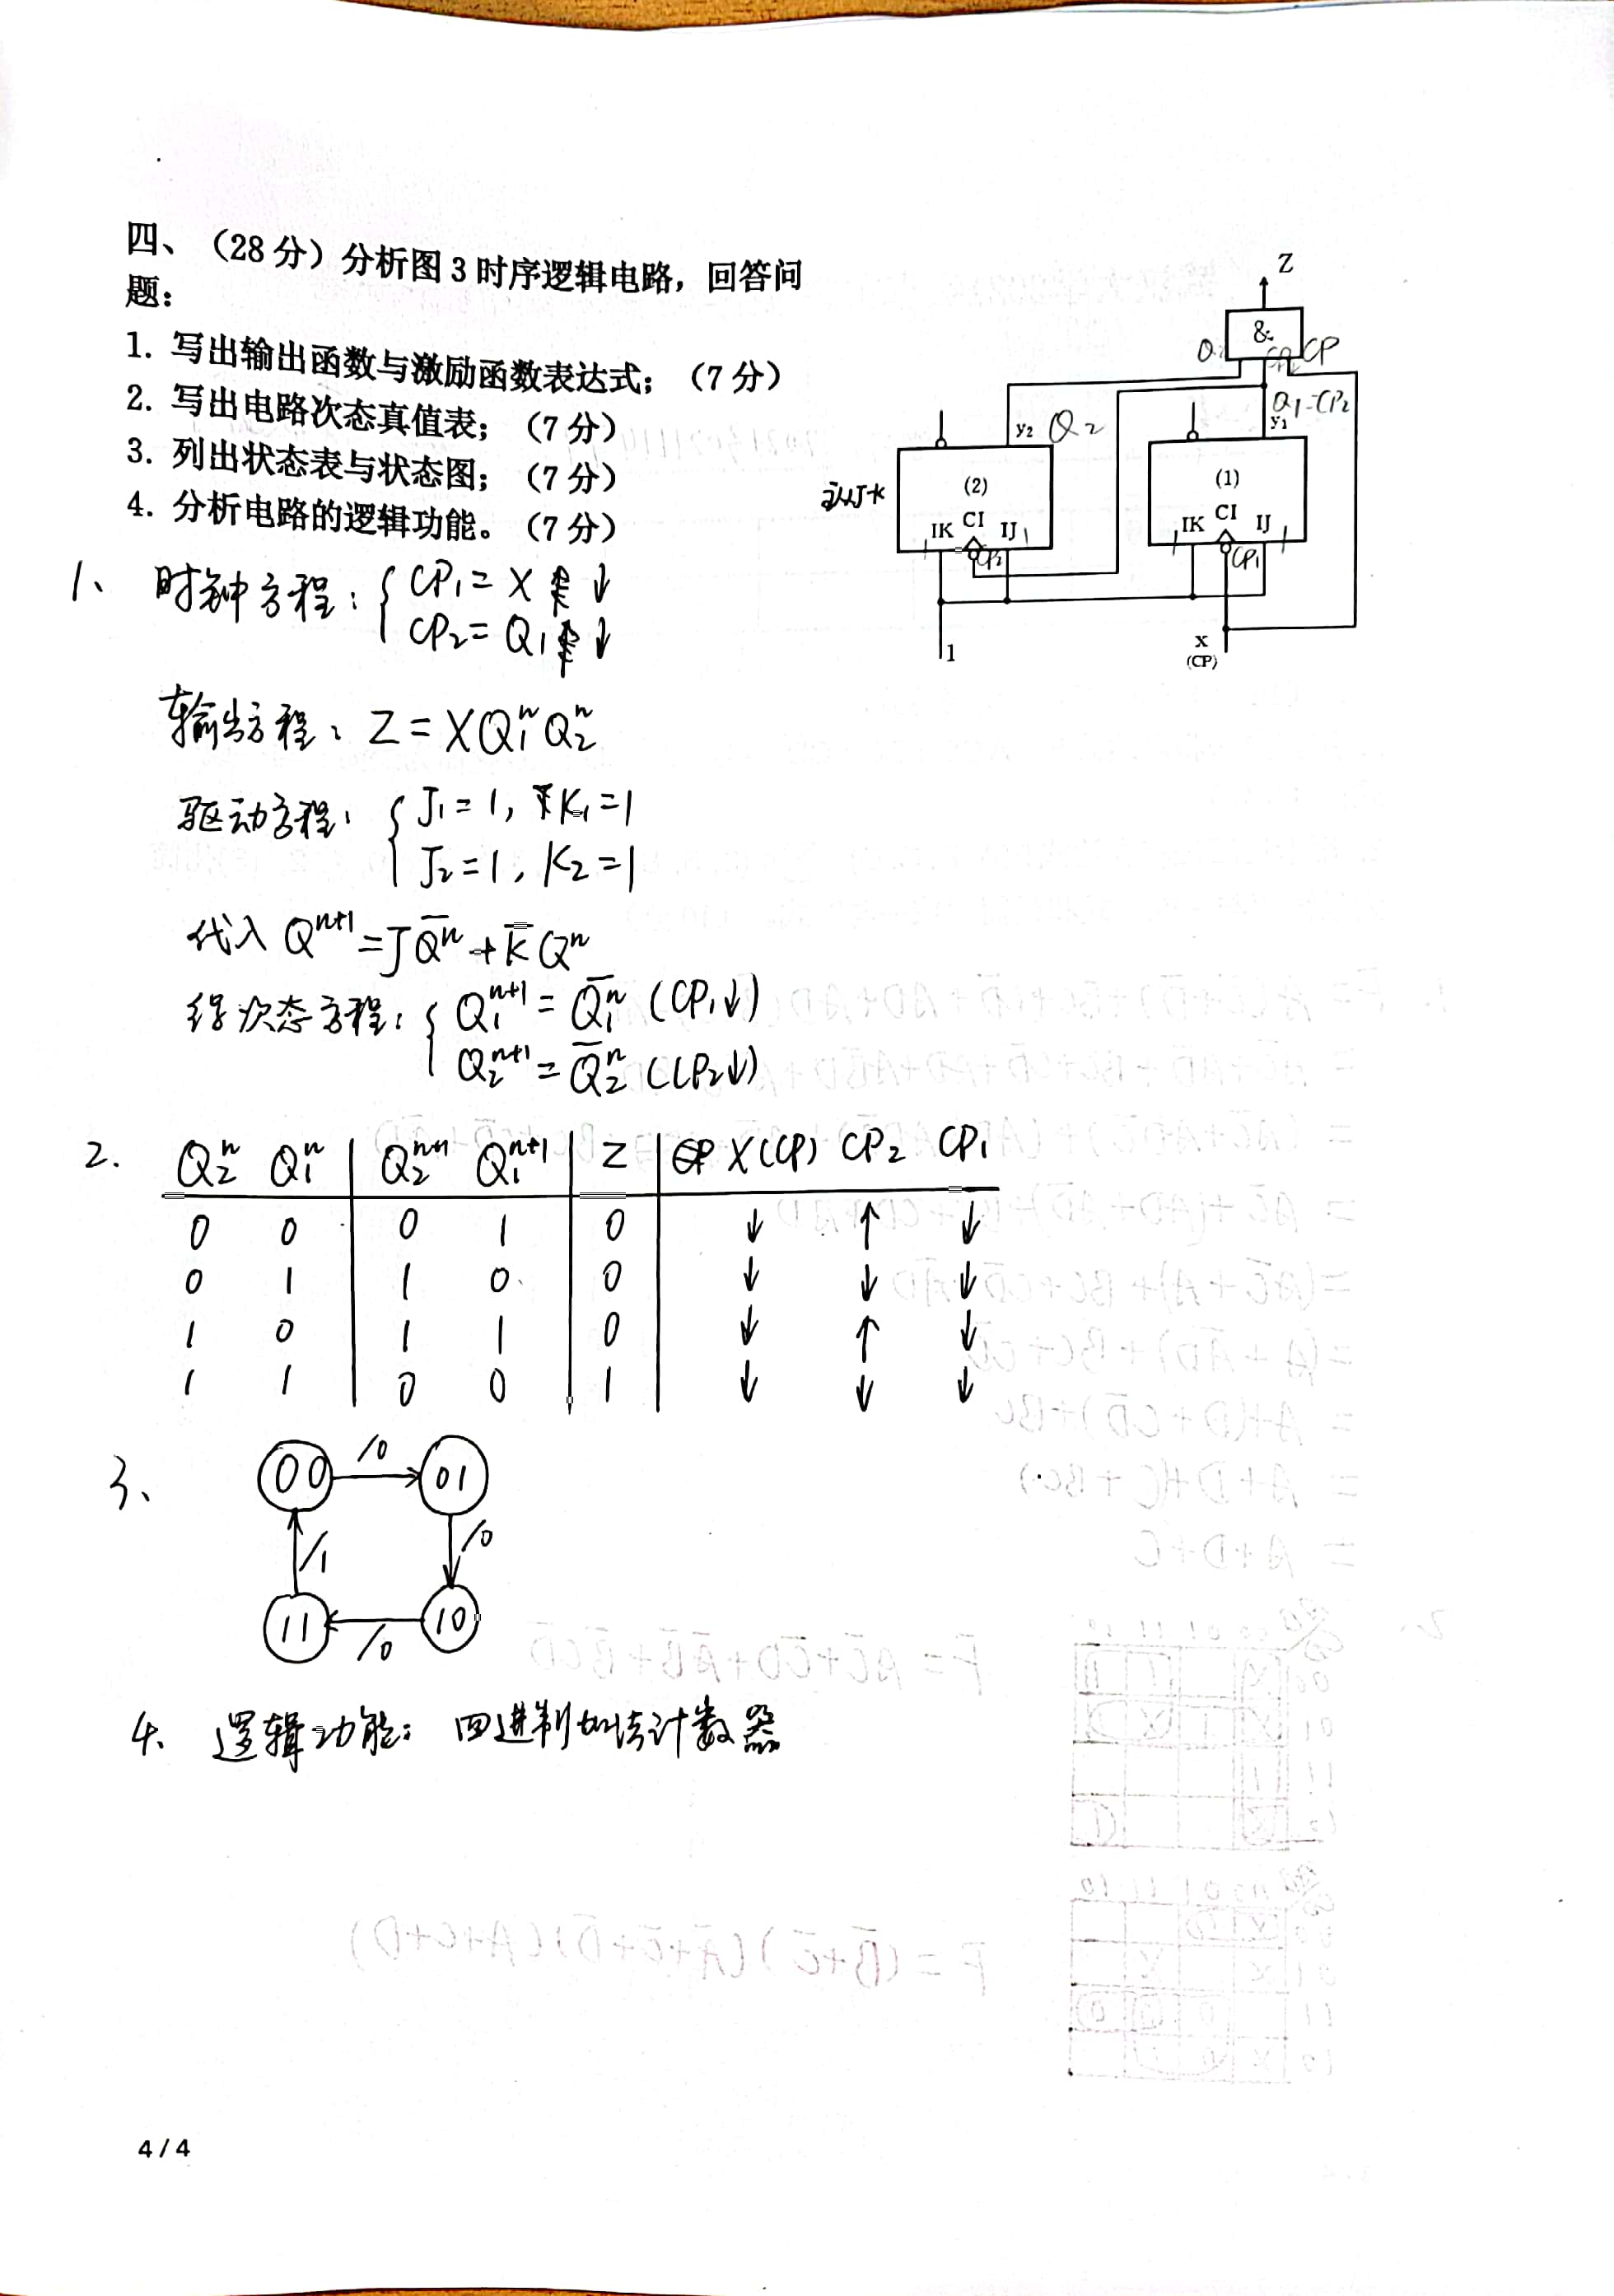 四、（28 分）分析图 3 时序逻辑电路，回答问
题：
1. 写出输出函数与激励函数表达式；（7 分）
2. 写出电路次态真值表；（7 分）
3. 列出状态表与状态图；（7 分）
4. 分析电路的逻辑功能。（7 分）
Z
&
CP
Q1=CP2
y2 Q2
y1
(2)
(1)
IK CI IJ
IK CI IJ
CP2
CP1
1
x
(CP)
1、 时钟方程：{ CP₁= X ↓
CP₂= Q₁ ↓
输出方程： Z = XQ₁ⁿQ₂ⁿ
驱动方程： { J₁=1, K₁=1
J₂=1, K₂=1
代入 Qⁿ⁺¹=JQ̅ⁿ+K̅Qⁿ
得次态方程：{ Q₁ⁿ⁺¹= Q̅₁ⁿ (CP₁↓)
Q₂ⁿ⁺¹= Q̅₂ⁿ (CP₂↓)
2. Q₂ⁿ Q₁ⁿ | Q₂ⁿ⁺¹ Q₁ⁿ⁺¹ | Z | X(CP) CP₂ CP₁
0 0 | 0 1 | 0 | ↓ ↑ ↓
0 1 | 1 0 | 0 | ↓ ↓ ↓
1 0 | 1 1 | 0 | ↓ ↑ ↓
1 1 | 0 0 | 1 | ↓ ↓ ↓
3、
00 /0 01
/1 /0
11 /0 10
4、 逻辑功能： 四进制加法计数器
4 / 4